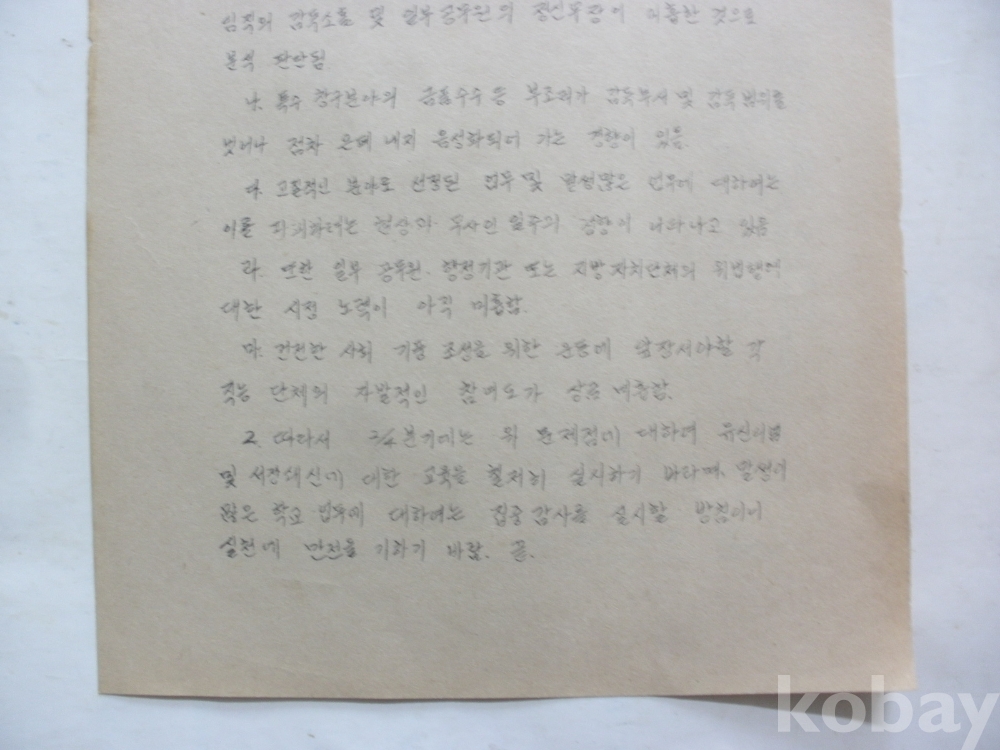 감독소홀 및 일부 공무원의 정신무장이 미흡한 것으로
분석 판단됨
나. 특수 창구분야의 금품수수 등 부조리가 감독부서 및 감독 범위를
벗어나 점차 은폐 내지 음성화되어 가는 경향이 있음.
다. 고질적인 분야로 선정된 업무 및 발생많은 업무에 대하여는
이를 피하려는 현상과 무사안일주의 경향이 나타나고 있음
라. 또한 일부 공무원. 행정기관 또는 지방자치단체의 위법행에
대한 시정 노력이 아직 미흡함.
마. 건전한 사회 기풍 조성을 위한 운동에 앞장서야할 각
직능 단체의 자발적인 참여도가 상금 미흡함.
2. 따라서 2/4분기에는 위 문제점에 대하여 유신이념
및 서정쇄신에 대한 교육을 철저히 실시하기 바라며. 발생이
많은 학교 업무에 대하여는 집중감사를 실시할 방침이니
실천에 만전을 기하기 바람. 끝.
kobay